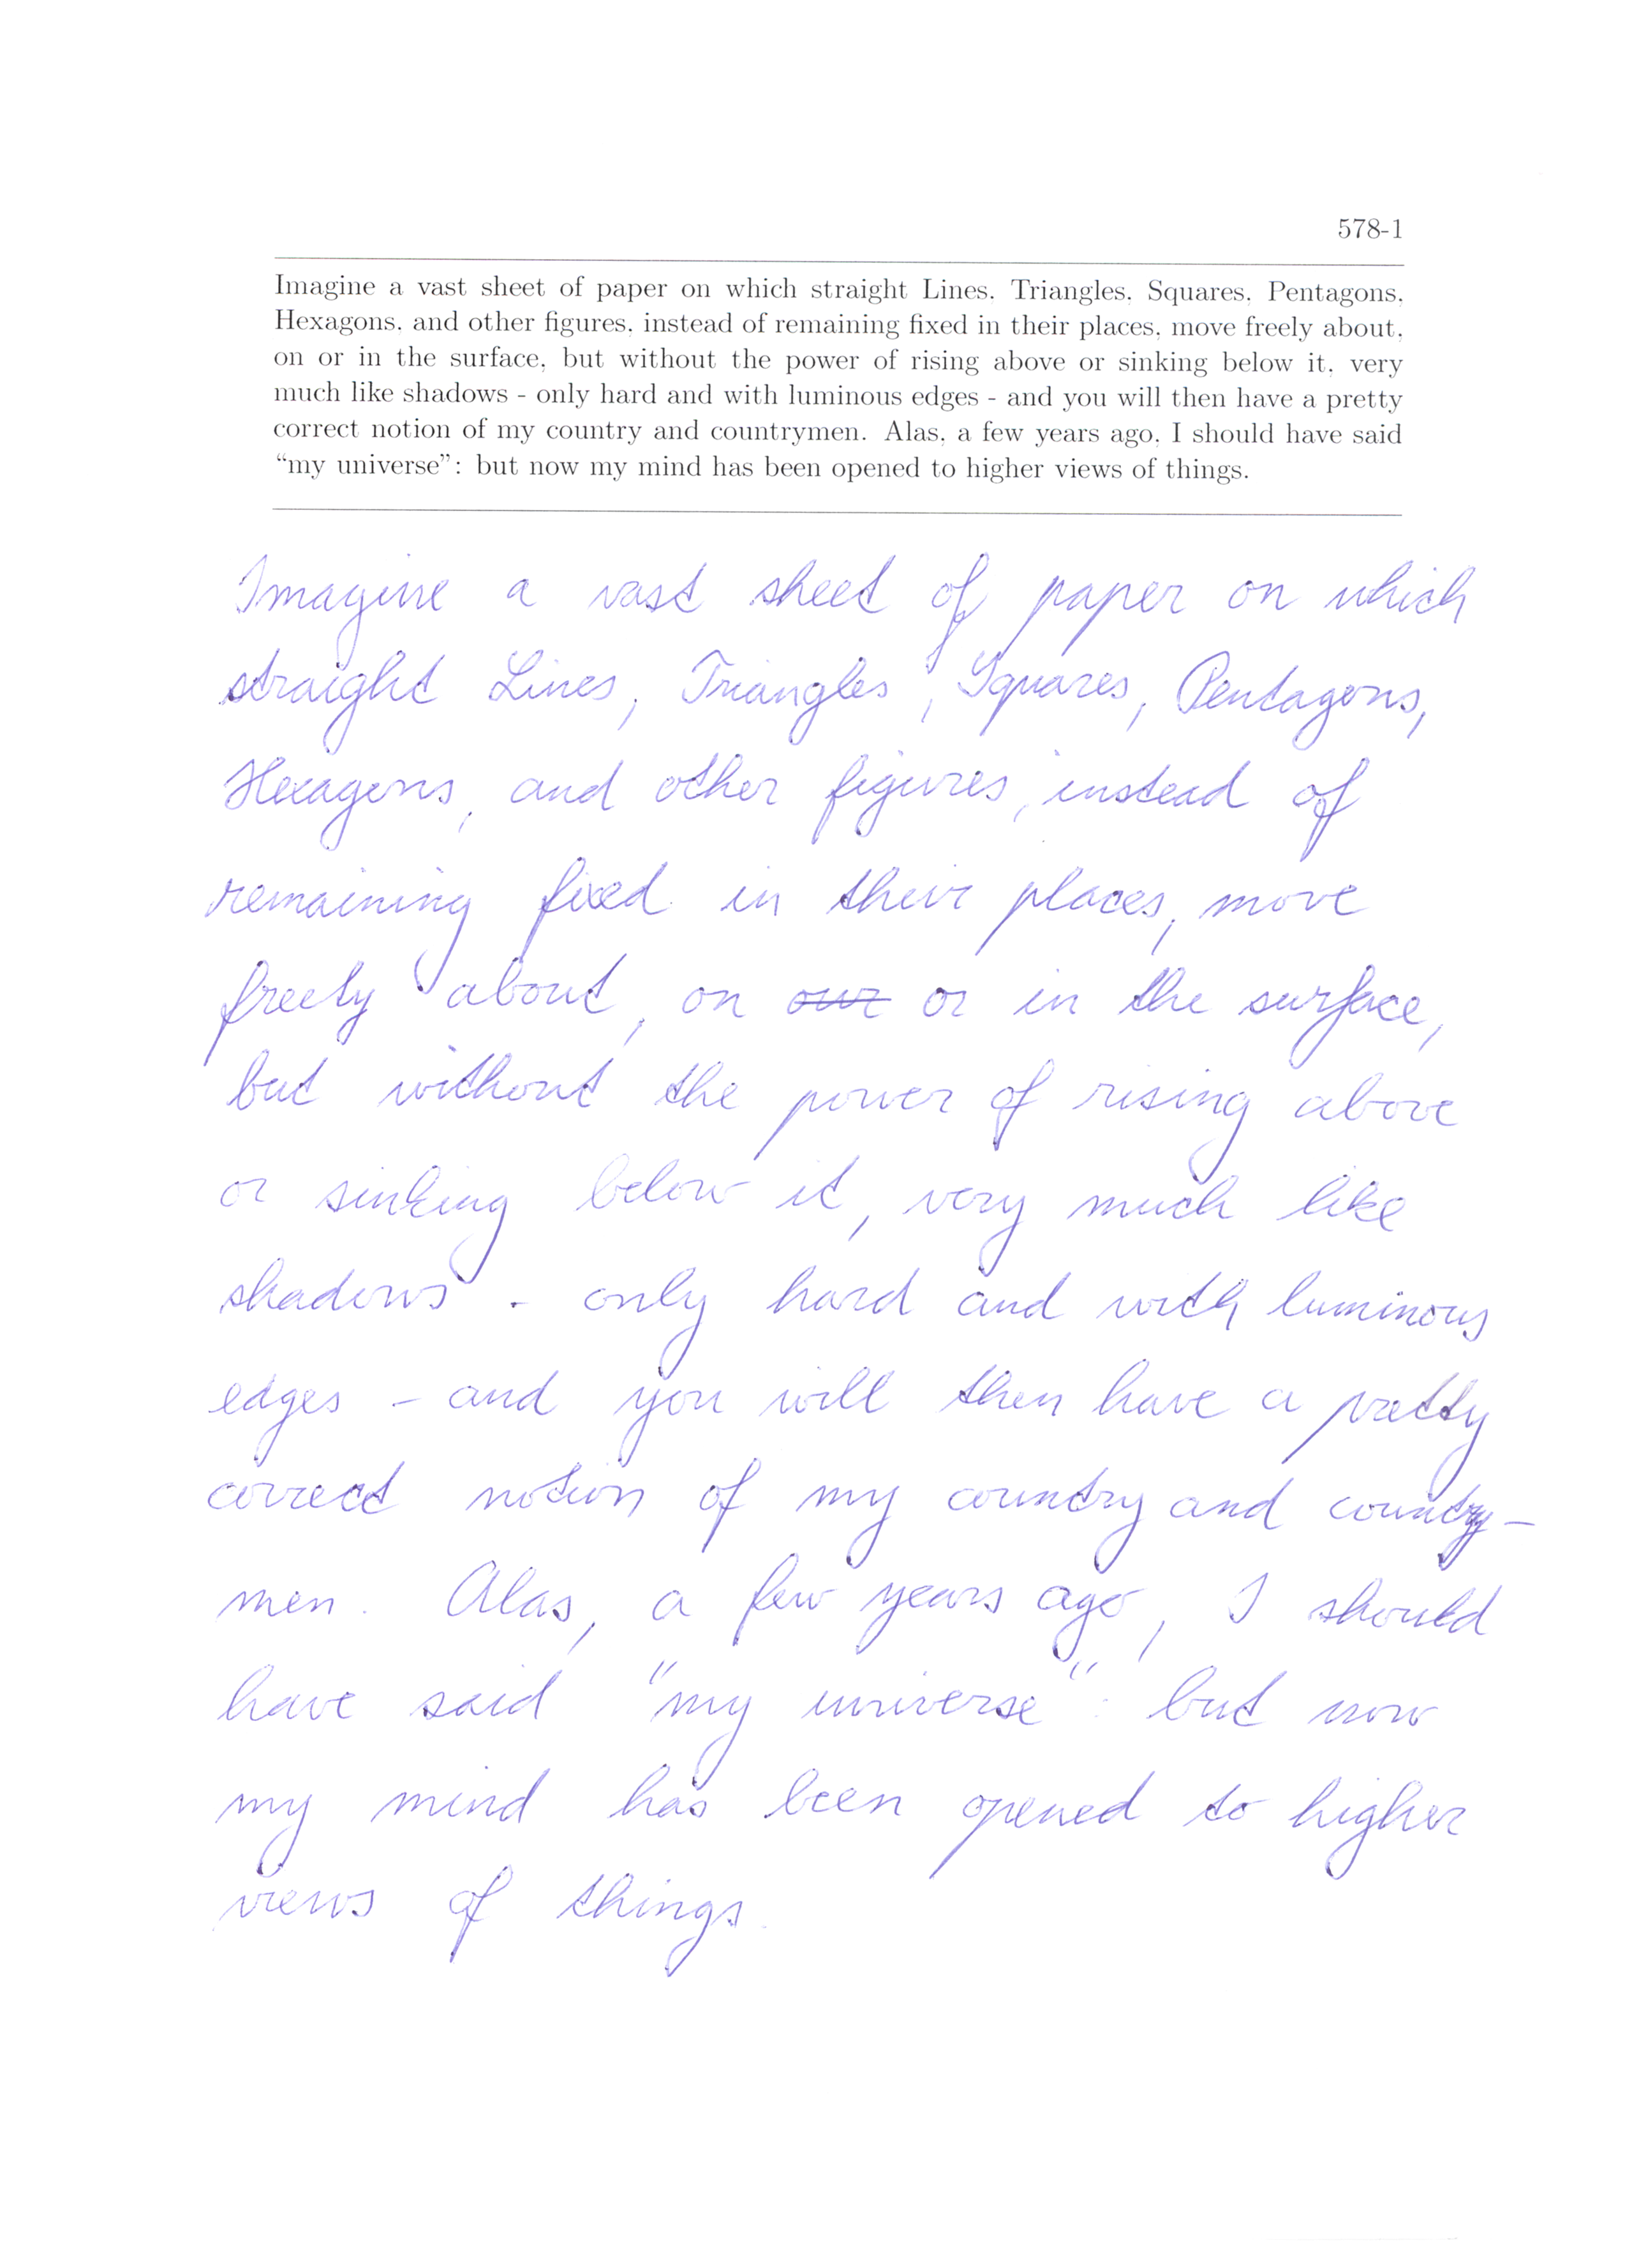 578-1
Imagine a vast sheet of paper on which straight Lines. Triangles. Squares. Pentagons.
Hexagons. and other figures. instead of remaining fixed in their places. move freely about.
on or in the surface. but without the power of rising above or sinking below it. very
much like shadows - only hard and with luminous edges - and you will then have a pretty
correct notion of my country and countrymen. Alas. a few years ago. I should have said
“my universe”: but now my mind has been opened to higher views of things.
Imagine a vast sheet of paper on which
straight Lines, Triangles, Squares, Pentagons,
Hexagons, and other figures, instead of
remaining fixed in their places, move
freely about, on our or in the surface,
but without the power of rising above
or sinking below it, very much like
shadows - only hard and with luminous
edges - and you will then have a pretty
correct notion of my country and country-
men. Alas, a few years ago, I should
have said "my universe": but now
my mind has been opened to higher
views of things.